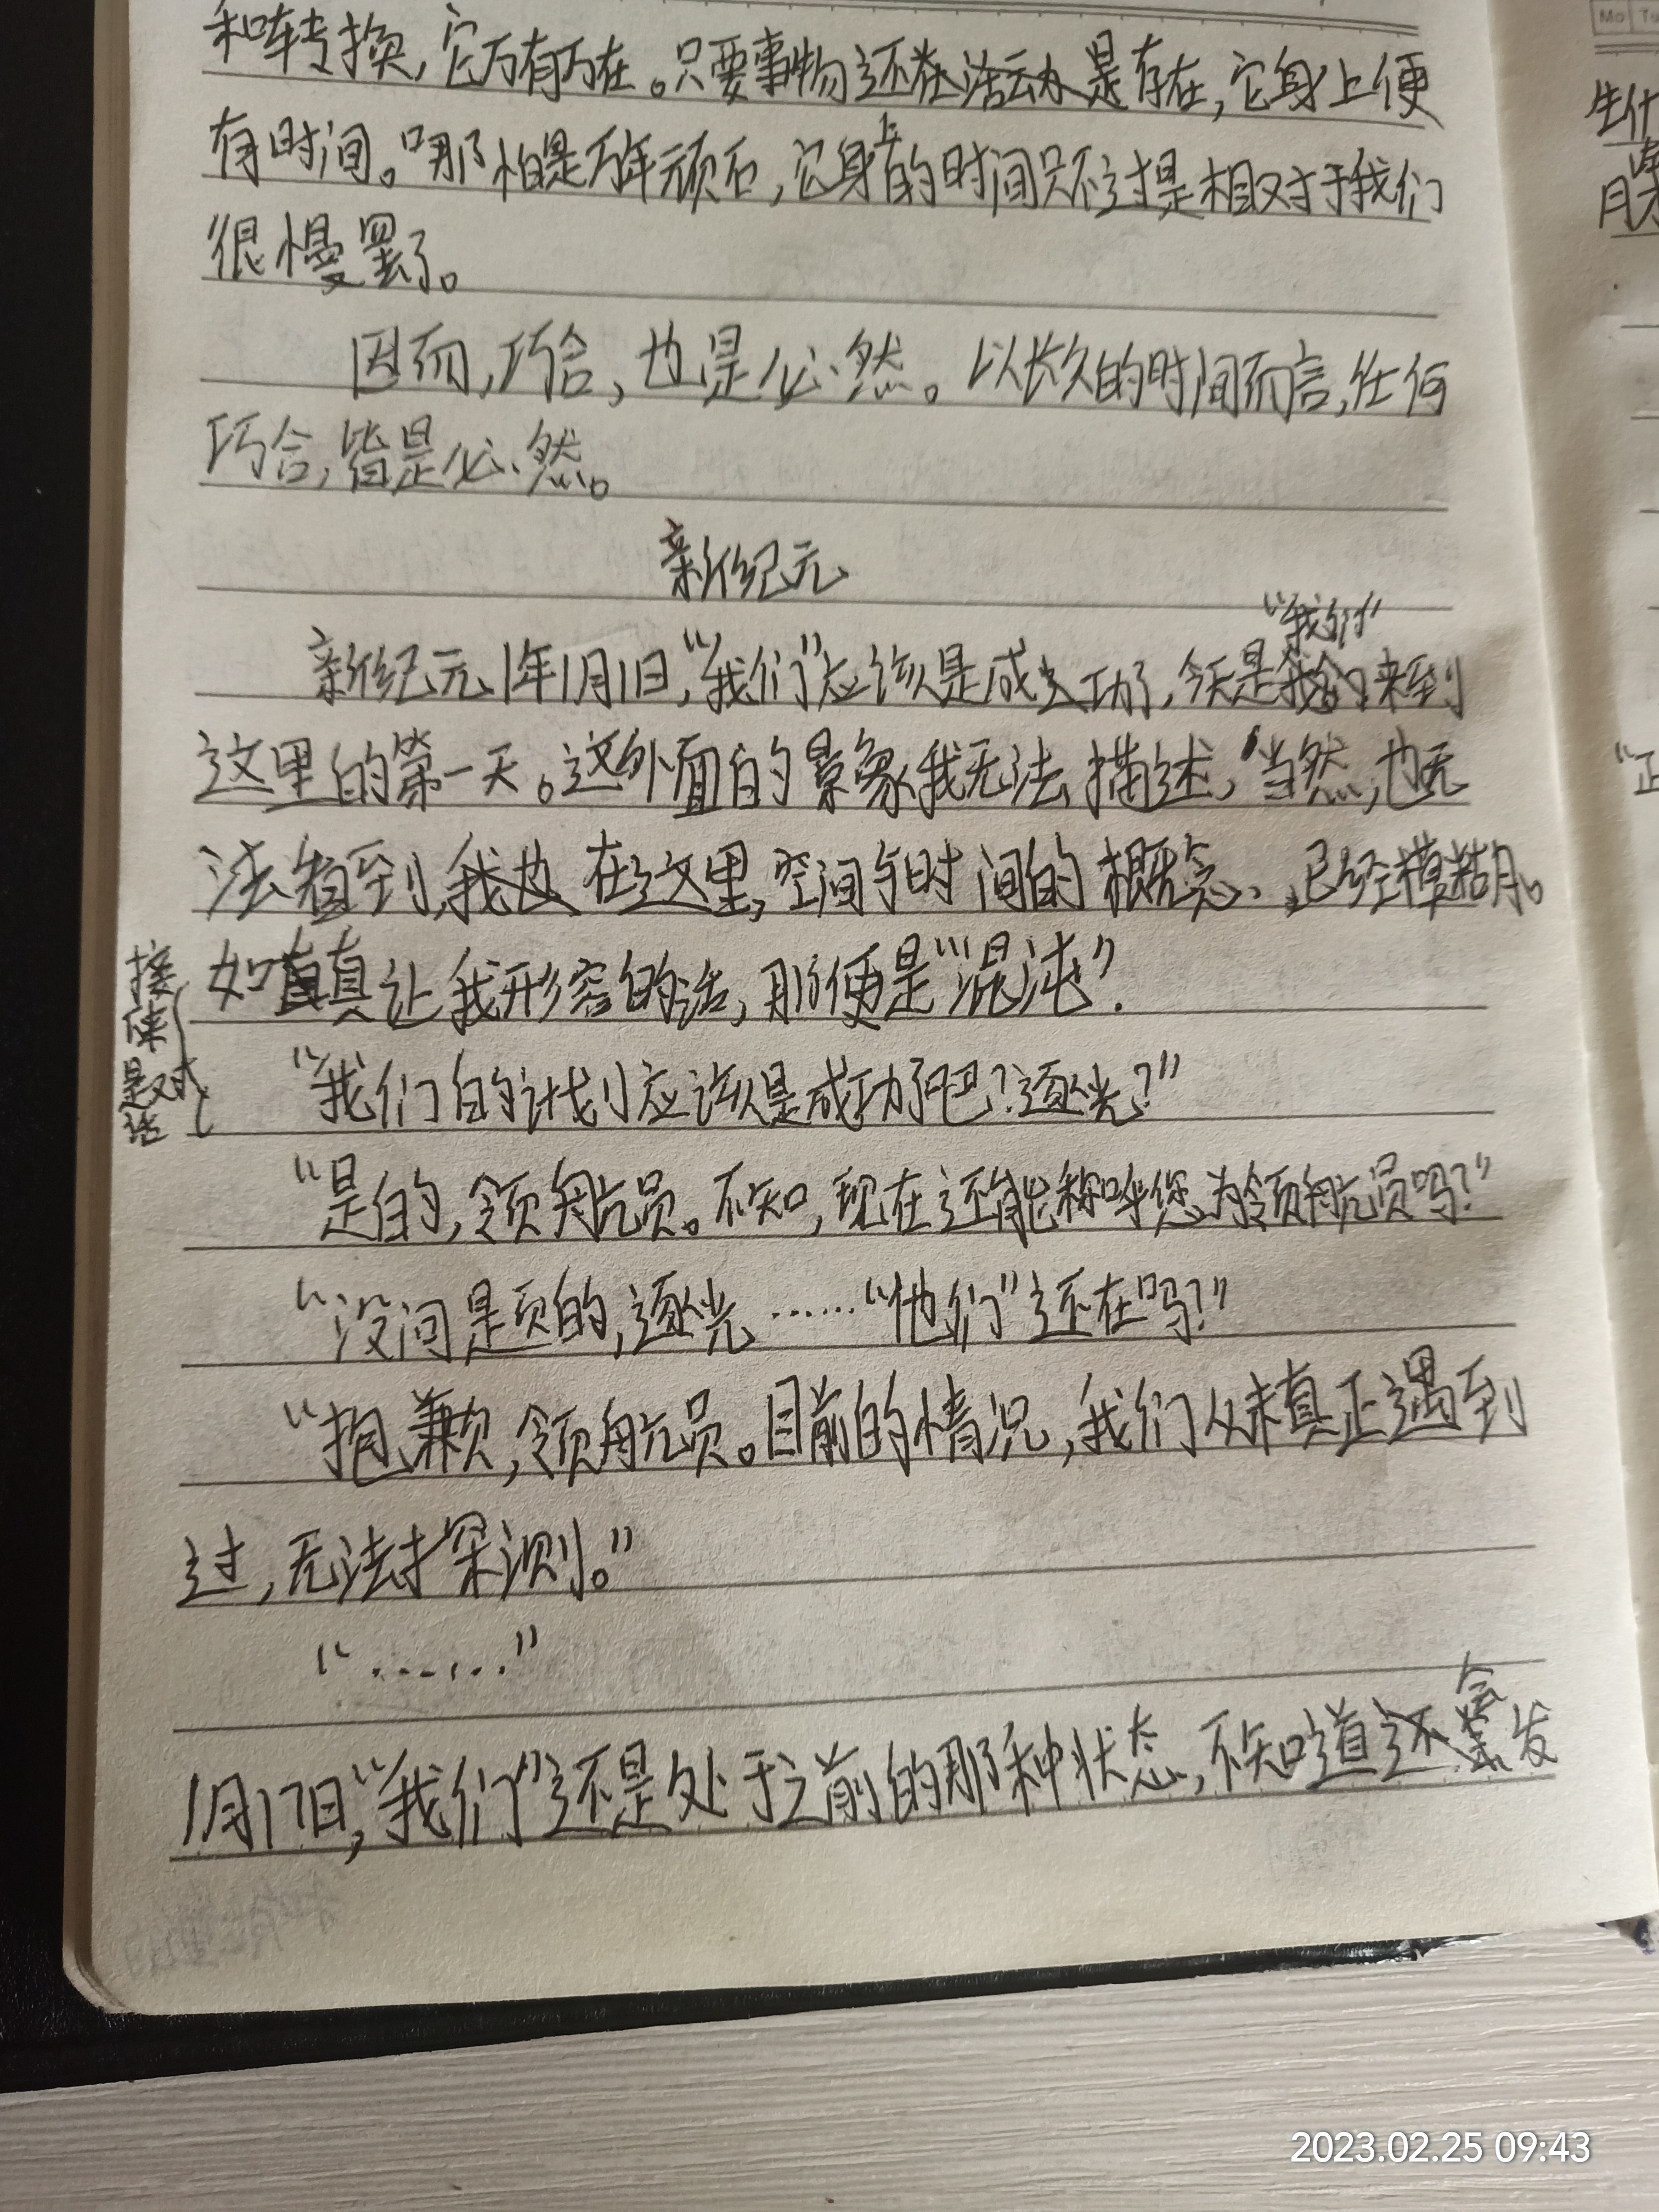 和转换，它万有万在。只要事物还在活动是存在，它身上便
有时间。哪怕是万年顽石，它身上的时间只不过是相对于我们
很慢罢了。
因而，巧合，也是必然。以长久的时间而言，任何
巧合，皆是必然。
新纪元
“我们”
新纪元1年1月1日，“我们”应该是成功了，今天是我们来到
这里的第一天。这外面的景象我无法描述，当然，也无
法看到，我也在这里，空间与时间的概念、已经模糊。
如真让我形容的话，那便是“混沌”.
接
下来
是对
话
“我们的计划应该是成功了吧？逐光？”
“是的，领航员。不知，现在还能称呼您为领航员吗？”
“没问题的，逐光……“他们”还在吗？”
“抱歉，领航员。目前的情况，我们从未真正遇到
过，无法探测。”
“……”
会
1月17日，“我们”还是处于之前的那种状态，不知道还发
生什
月
“正
Mo Tu
2023.02.25 09:43